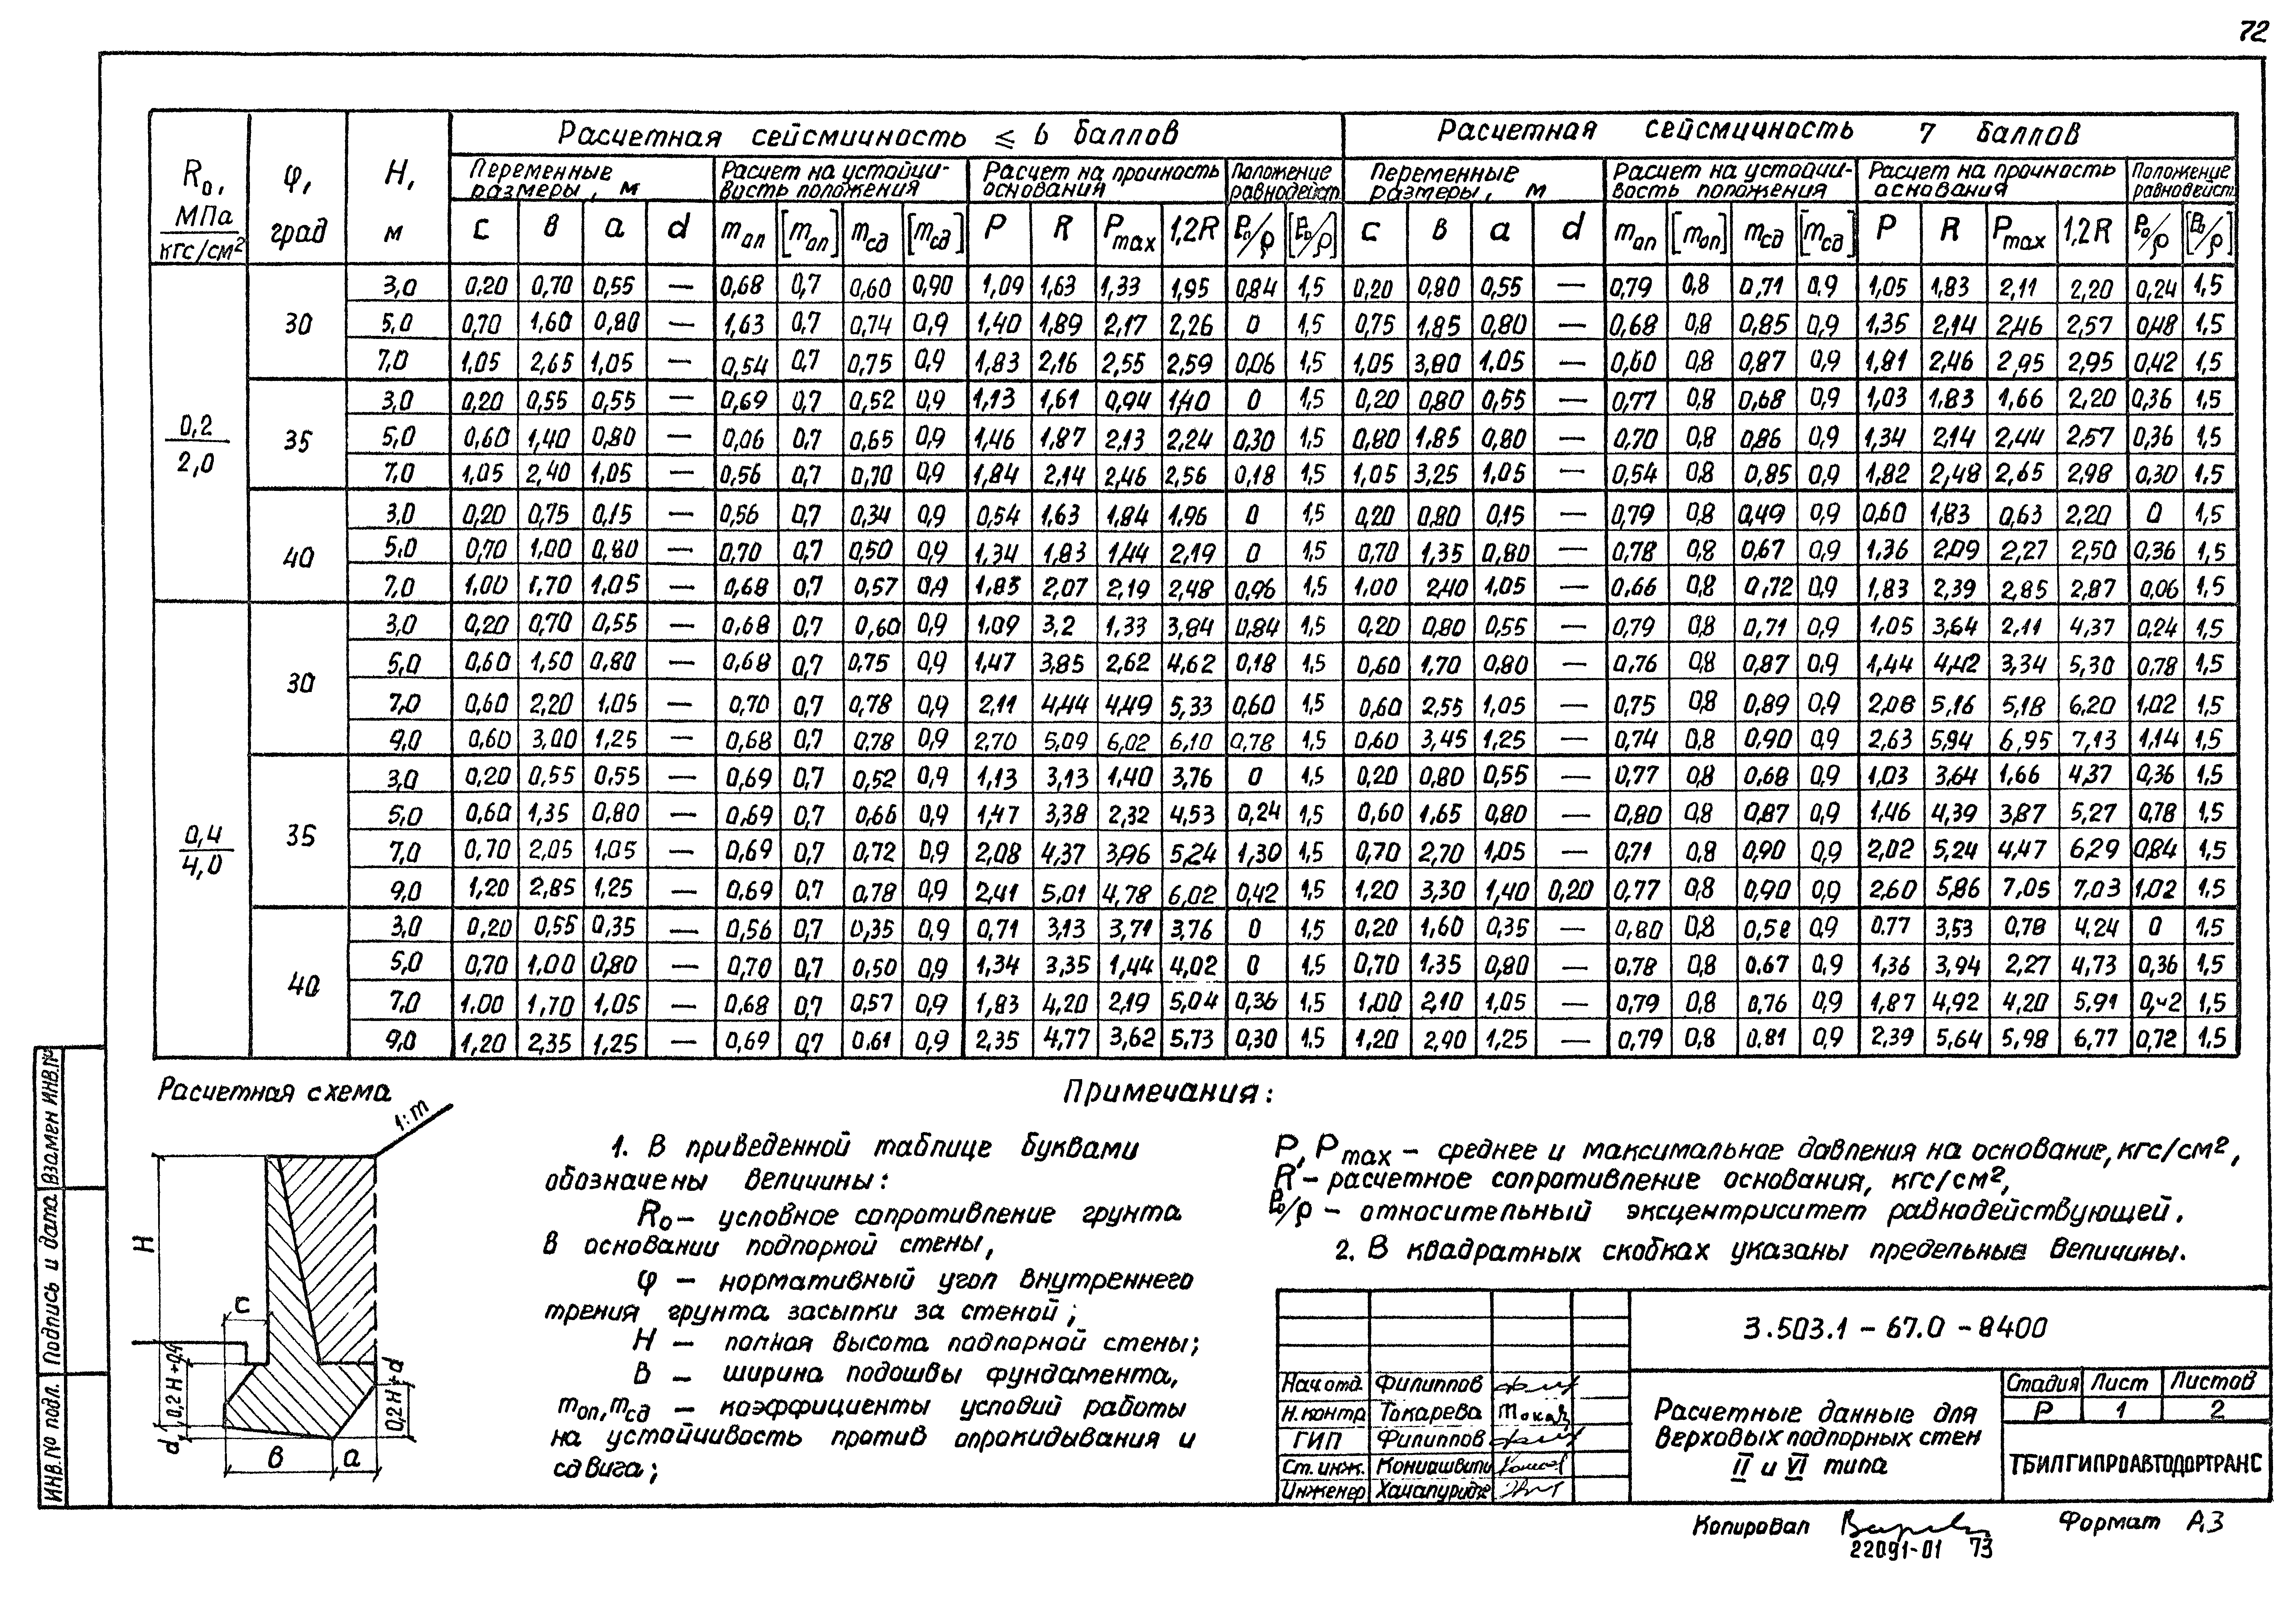 72
Расчетная сейсмичность ≤ 6 баллов Расчетная сейсмичность 7 баллов
R₀, МПа / кгс/см² φ, град H, м Переменные размеры, м Расчет на устойчивость положения Расчет на прочность основания Положение равнодейст. Переменные размеры, м Расчет на устойчивость положения Расчет на прочность основания Положение равнодейст.
c в a d mоп [mоп] mсд [mсд] P R Pmax 1,2R e₀/ρ [e₀/ρ] c в a d mоп [mоп] mсд [mсд] P R Pmax 1,2R e₀/ρ [e₀/ρ]
0,2/2,0
30
3,0 0,20 0,70 0,55 — 0,68 0,7 0,60 0,90 1,09 1,63 1,33 1,95 0,84 1,5 0,20 0,80 0,55 — 0,79 0,8 0,71 0,9 1,05 1,83 2,11 2,20 0,24 1,5
5,0 0,70 1,60 0,80 — 1,63 0,7 0,74 0,9 1,40 1,89 2,17 2,26 0 1,5 0,75 1,85 0,80 — 0,68 0,8 0,85 0,9 1,35 2,14 2,46 2,57 0,48 1,5
7,0 1,05 2,65 1,05 — 0,54 0,7 0,75 0,9 1,83 2,16 2,55 2,59 0,06 1,5 1,05 3,80 1,05 — 0,60 0,8 0,87 0,9 1,81 2,46 2,95 2,95 0,42 1,5
35
3,0 0,20 0,55 0,55 — 0,69 0,7 0,52 0,9 1,13 1,61 0,94 1,40 0 1,5 0,20 0,80 0,55 — 0,77 0,8 0,68 0,9 1,03 1,83 1,66 2,20 0,36 1,5
5,0 0,60 1,40 0,80 — 0,06 0,7 0,65 0,9 1,46 1,87 2,13 2,24 0,30 1,5 0,80 1,85 0,80 — 0,70 0,8 0,86 0,9 1,34 2,14 2,44 2,57 0,36 1,5
7,0 1,05 2,40 1,05 — 0,56 0,7 0,70 0,9 1,84 2,14 2,46 2,56 0,18 1,5 1,05 3,25 1,05 — 0,54 0,8 0,85 0,9 1,82 2,48 2,65 2,98 0,30 1,5
40
3,0 0,20 0,75 0,15 — 0,56 0,7 0,34 0,9 0,54 1,63 1,84 1,96 0 1,5 0,20 0,80 0,15 — 0,79 0,8 0,49 0,9 0,60 1,83 0,63 2,20 0 1,5
5,0 0,70 1,00 0,80 — 0,70 0,7 0,50 0,9 1,34 1,83 1,44 2,19 0 1,5 0,70 1,35 0,80 — 0,78 0,8 0,67 0,9 1,36 2,09 2,27 2,50 0,36 1,5
7,0 1,00 1,70 1,05 — 0,68 0,7 0,57 0,9 1,83 2,07 2,19 2,48 0,96 1,5 1,00 2,40 1,05 — 0,66 0,8 0,72 0,9 1,83 2,39 2,85 2,87 0,06 1,5
0,4/4,0
30
3,0 0,20 0,70 0,55 — 0,68 0,7 0,60 0,9 1,09 3,2 1,33 3,84 0,84 1,5 0,20 0,80 0,55 — 0,79 0,8 0,71 0,9 1,05 3,64 2,11 4,37 0,24 1,5
5,0 0,60 1,50 0,80 — 0,68 0,7 0,75 0,9 1,47 3,85 2,62 4,62 0,18 1,5 0,60 1,70 0,80 — 0,76 0,8 0,87 0,9 1,44 4,42 3,34 5,30 0,78 1,5
7,0 0,60 2,20 1,05 — 0,70 0,7 0,78 0,9 2,11 4,44 4,49 5,33 0,60 1,5 0,60 2,55 1,05 — 0,75 0,8 0,89 0,9 2,08 5,16 5,18 6,20 1,02 1,5
9,0 0,60 3,00 1,25 — 0,68 0,7 0,78 0,9 2,70 5,09 6,02 6,10 0,78 1,5 0,60 3,45 1,25 — 0,74 0,8 0,90 0,9 2,63 5,94 6,95 7,13 1,14 1,5
35
3,0 0,20 0,55 0,55 — 0,69 0,7 0,52 0,9 1,13 3,13 1,40 3,76 0 1,5 0,20 0,80 0,55 — 0,77 0,8 0,68 0,9 1,03 3,64 1,66 4,37 0,36 1,5
5,0 0,60 1,35 0,80 — 0,69 0,7 0,66 0,9 1,47 3,38 2,32 4,53 0,24 1,5 0,60 1,65 0,80 — 0,80 0,8 0,87 0,9 1,46 4,39 3,87 5,27 0,78 1,5
7,0 0,70 2,05 1,05 — 0,69 0,7 0,72 0,9 2,08 4,37 3,96 5,24 1,30 1,5 0,70 2,70 1,05 — 0,71 0,8 0,90 0,9 2,02 5,24 4,47 6,29 0,84 1,5
9,0 1,20 2,85 1,25 — 0,69 0,7 0,78 0,9 2,41 5,01 4,78 6,02 0,42 1,5 1,20 3,30 1,40 0,20 0,77 0,8 0,90 0,9 2,60 5,86 7,05 7,03 1,02 1,5
40
3,0 0,20 0,55 0,35 — 0,56 0,7 0,35 0,9 0,71 3,13 3,71 3,76 0 1,5 0,20 1,60 0,35 — 0,80 0,8 0,58 0,9 0,77 3,53 0,78 4,24 0 1,5
5,0 0,70 1,00 0,80 — 0,70 0,7 0,50 0,9 1,34 3,35 1,44 4,02 0 1,5 0,70 1,35 0,80 — 0,78 0,8 0,67 0,9 1,36 3,94 2,27 4,73 0,36 1,5
7,0 1,00 1,70 1,05 — 0,68 0,7 0,57 0,9 1,83 4,20 2,19 5,04 0,36 1,5 1,00 2,10 1,05 — 0,79 0,8 0,76 0,9 1,87 4,92 4,20 5,91 0,42 1,5
9,0 1,20 2,35 1,25 — 0,69 0,7 0,61 0,9 2,35 4,77 3,62 5,73 0,30 1,5 1,20 2,90 1,25 — 0,79 0,8 0,81 0,9 2,39 5,64 5,98 6,77 0,72 1,5
Расчетная схема
1:m
H
c
d, 0,2H+0,4
0,2H+d
в
a
Примечания:
1. В приведенной таблице буквами
обозначены величины:
R₀ — условное сопротивление грунта
в основании подпорной стены,
φ — нормативный угол внутреннего
трения грунта засыпки за стеной;
H — полная высота подпорной стены;
В — ширина подошвы фундамента,
mоп, mсд — коэффициенты условий работы
на устойчивость против опрокидывания и
сдвига;
P, Pmax — среднее и максимальное давления на основание, кгс/см²,
R — расчетное сопротивление основания, кгс/см²,
e₀/ρ — относительный эксцентриситет равнодействующей.
2. В квадратных скобках указаны предельные величины.
3.503.1-67.0-8400
Нач.отд. Филиппов
Н.контр. Токарева
ГИП Филиппов
Ст.инж. Кониашвили
Инженер Хачапуридзе
Расчетные данные для
верховых подпорных стен
II и VI типа
Стадия Лист Листов
Р 1 2
ТБИЛГИПРОАВТОДОРТРАНС
Инв.№ подл. Подпись и дата Взамен инв.№
Копировал Формат А3
22091-01 73